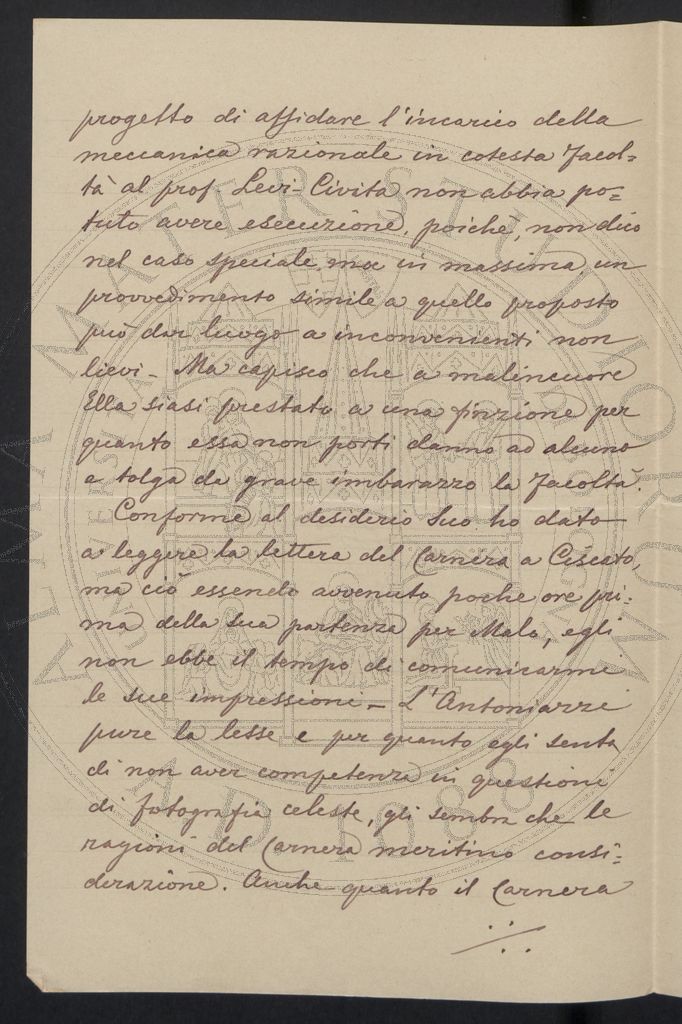 progetto di affidare l'incarico della
meccanica razionale in cotesta Facol=
tà al prof Levi-Civita non abbia po=
tuto avere esecuzione, poichè, non dico
nel caso speciale, ma in massima, un
provvedimento simile a quello proposto
può dar luogo a inconvenienti non
lievi - Ma capisco che a malincuore
Ella siasi prestato a una finzione per
quanto essa non porti danno ad alcuno
e tolga da grave imbarazzo la Facoltà.
Conforme al desiderio Suo ho dato
a leggere la lettera del Carnera a Ciscato,
ma ciò essendo avvenuto poche ore pri=
ma della sua partenza per Malo, egli
non ebbe il tempo di comunicarmi
le sue impressioni - L'Antoniazzi
pure la lesse e per quanto egli senta
di non aver competenza in questioni
di fotografia celeste, gli sembra che le
ragioni del Carnera meritino consi=
derazione. Anche quanto il Carnera
./..
ALMA MATER STUDIORUM
A.D. 1088